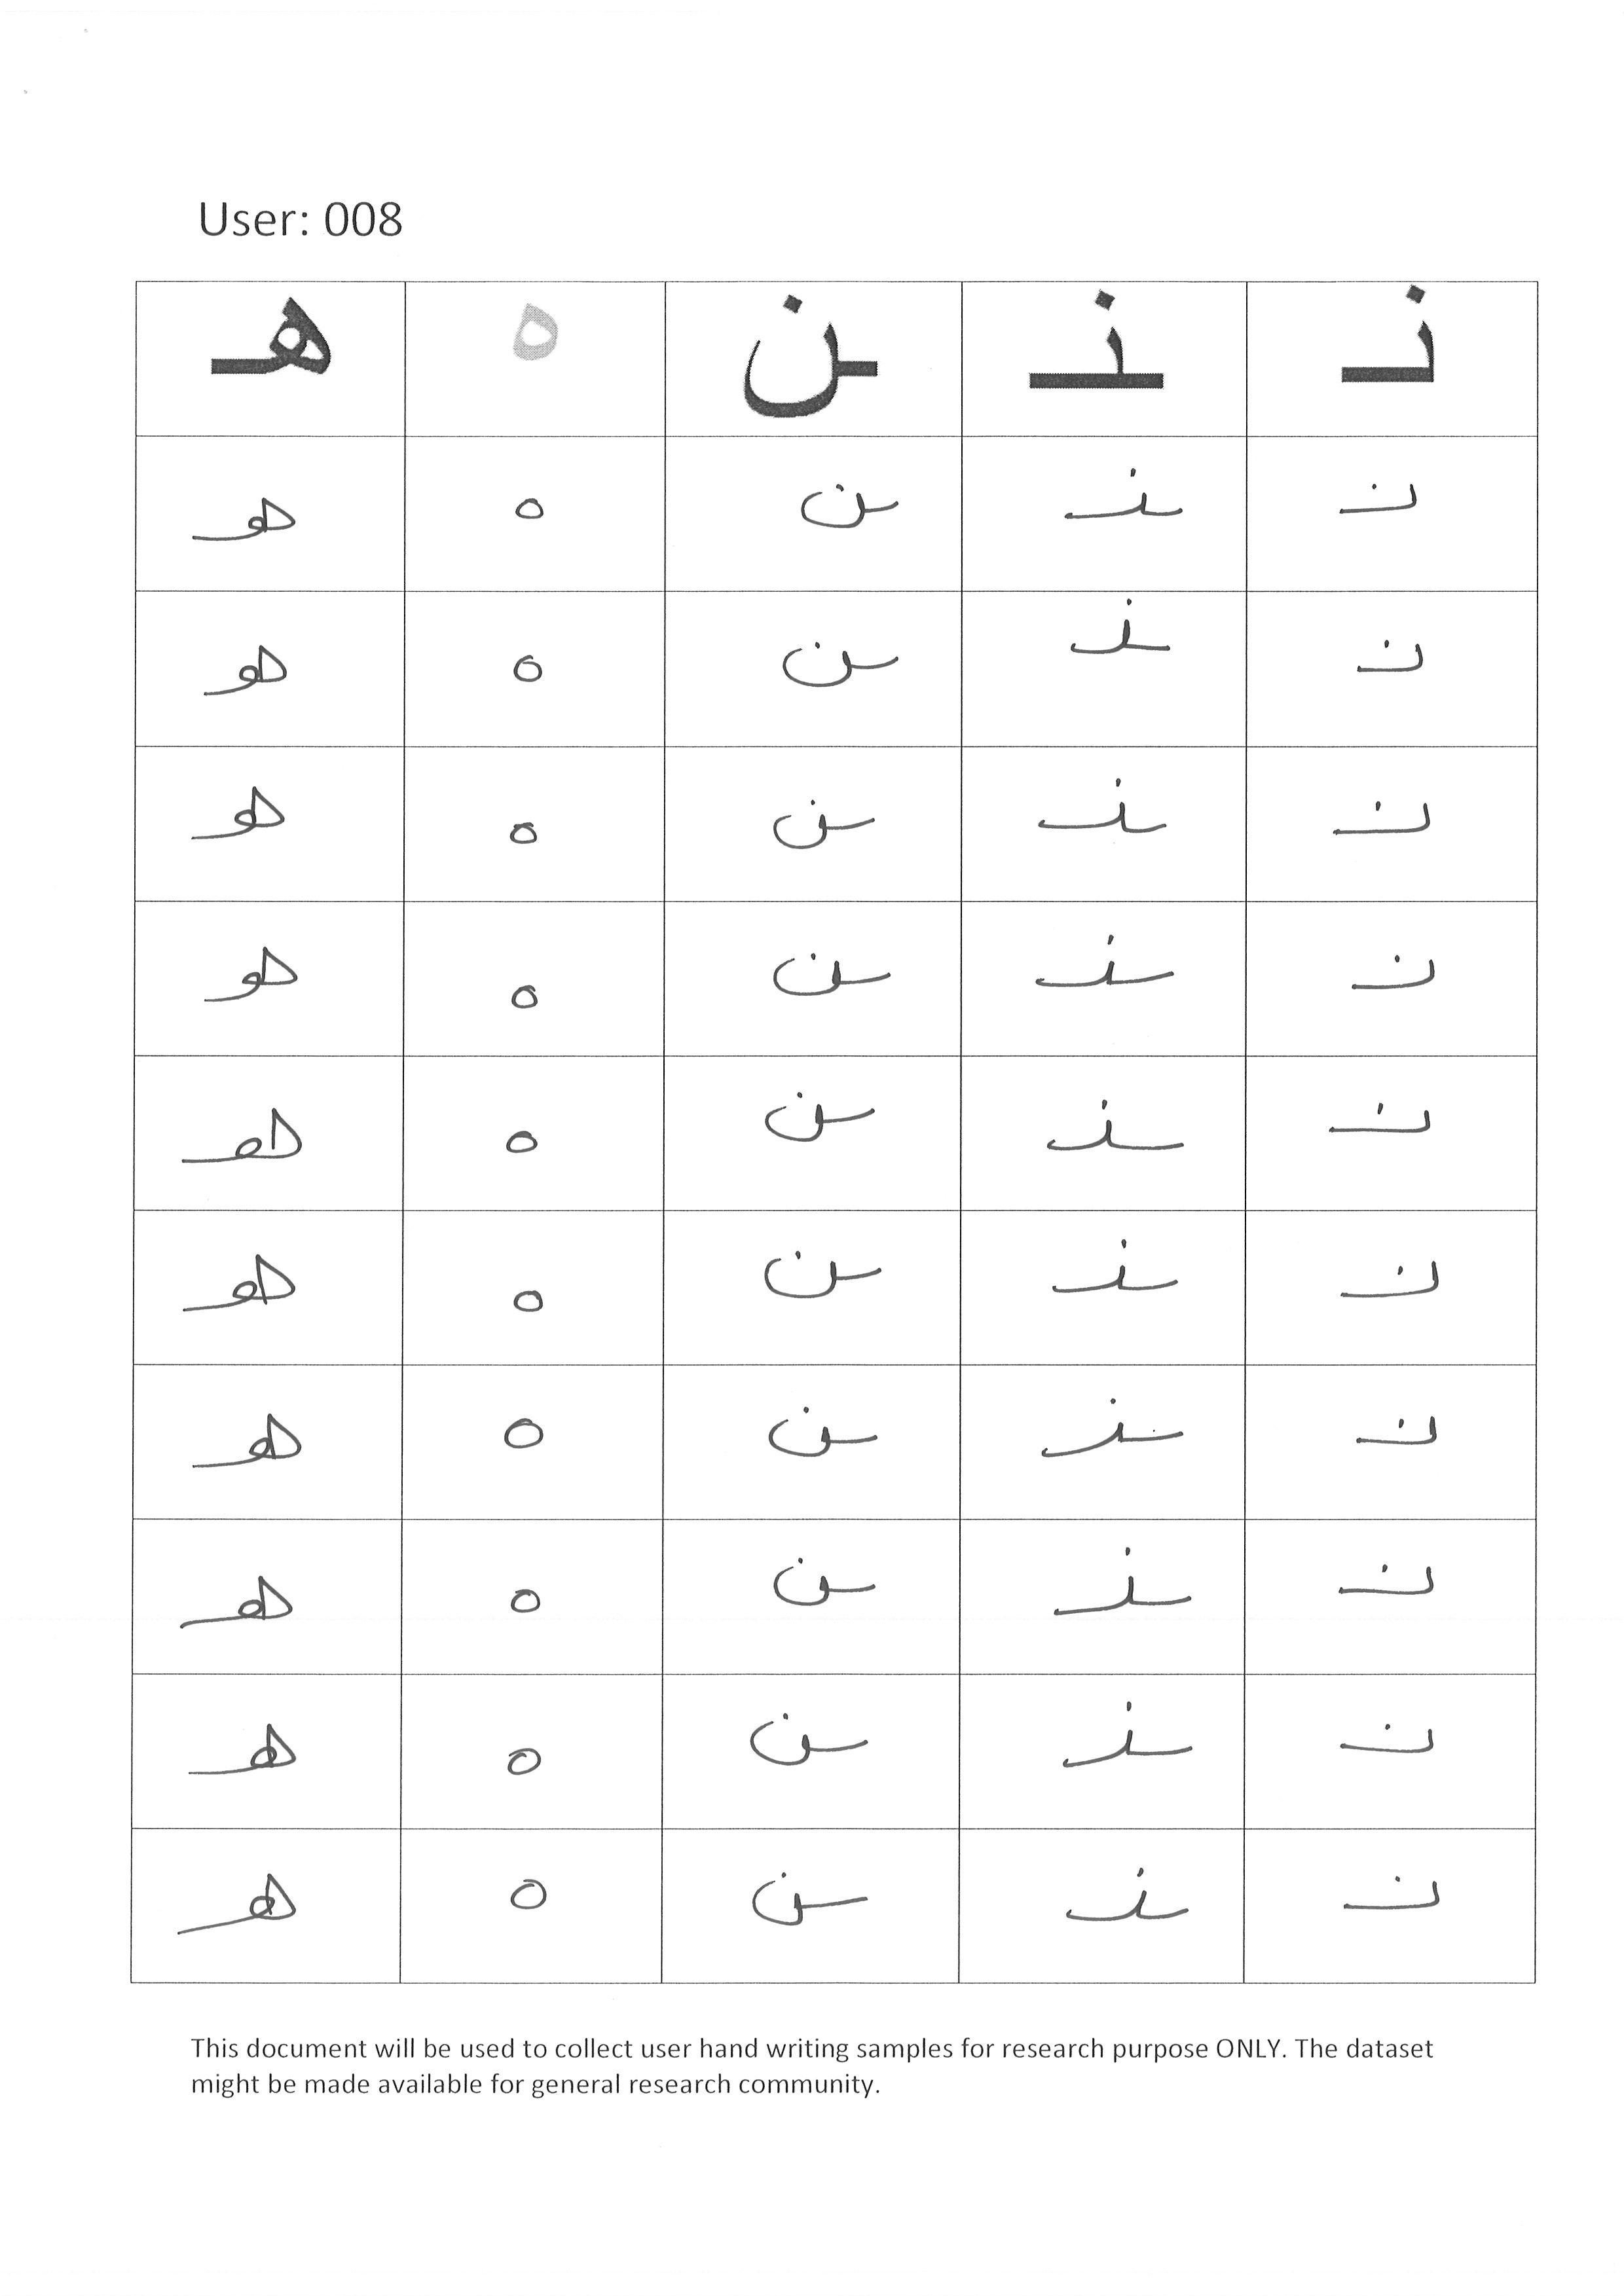 User: 008
نـ ـنـ ـن ه هـ
نـ ـنـ ـن ه هـ
نـ ـنـ ـن ه هـ
نـ ـنـ ـن ه هـ
نـ ـنـ ـن ه هـ
نـ ـنـ ـن ه هـ
نـ ـنـ ـن ه هـ
نـ ـنـ ـن ه هـ
نـ ـنـ ـن ه هـ
نـ ـنـ ـن ه هـ
نـ ـنـ ـن ه هـ
This document will be used to collect user hand writing samples for research purpose ONLY. The dataset
might be made available for general research community.